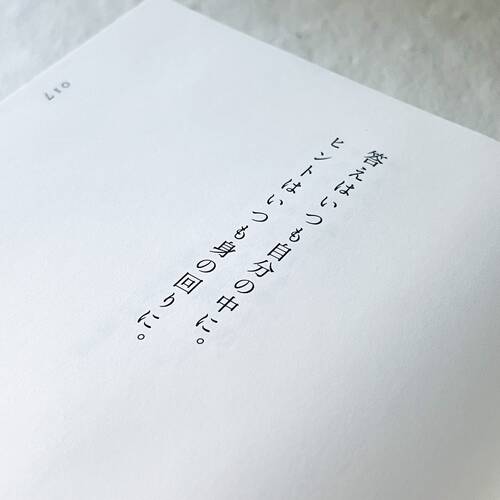 答えはいつも自分の中に。
ヒントはいつも身の回りに。
017